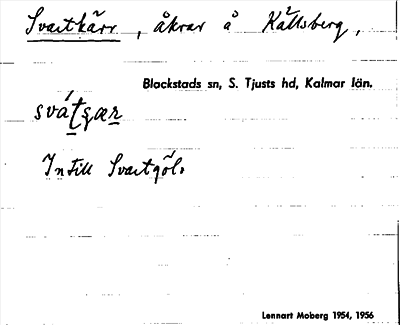 Svartkärr, åkrar å Källsberg,
Blackstads sn, S. Tjusts hd, Kalmar län.
svátçær
Intill Svartgöl.
Lennart Moberg 1954, 1956